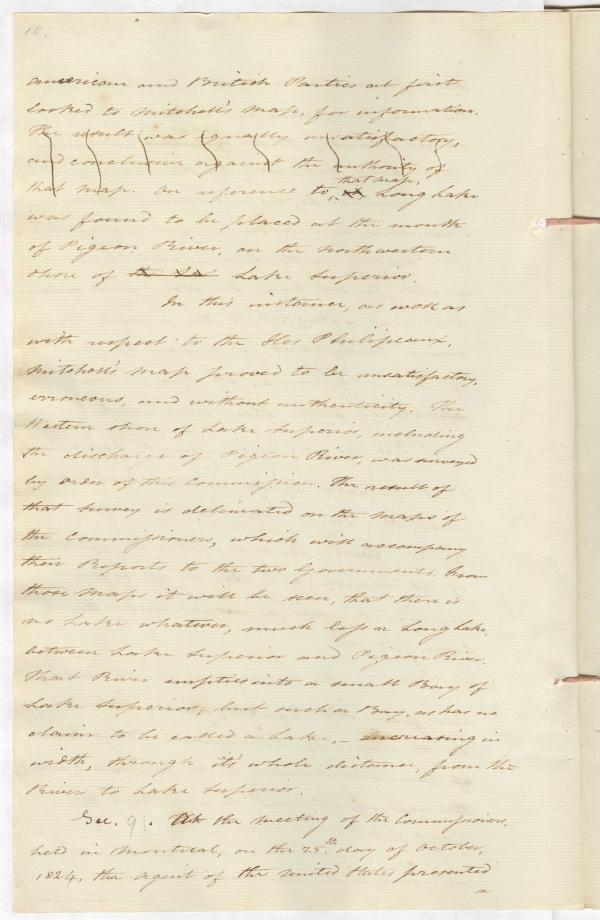 10.
american and British Parties at first
looked to Mitchell's map, for information.
The result was equally unsatisfactory,
and conclusive against the authority of
that map. On reference to, that map, Long Lake
was found to be placed at the mouth
of Pigeon River, on the northwestern
shore of Lake Superior.
In this instance, as well as
with respect to the Iles Philipeaux,
Mitchell's map proved to be unsatisfactory,
erroneous, and without authenticity. The
Western shore of Lake Superior, including
the discharge of Pigeon River, was surveyed
by order of this Commission. The result of
that survey is delineated on the maps of
the Commissioners, which will accompany
their Reports to the two Governments. From
those maps it will be seen, that there is
no Lake whatever, much less a Long Lake,
between Lake Superior and Pigeon River.
That River empties into a small Bay of
Lake Superior; but such a Bay, as has no
claim to be called a Lake,- increasing in
width, through it's whole distance, from the
River to Lake Superior.
Sec. 91. At the meeting of the Commissioners,
held in Montreal, on the 25th day of October,
1824, the agent of the United States presented
a